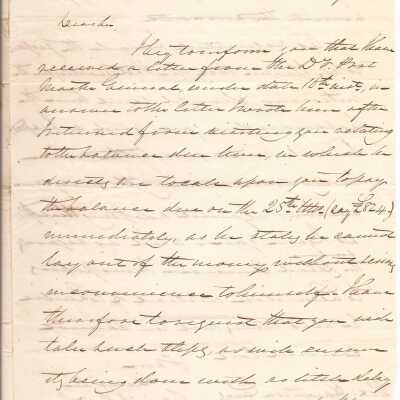 Dear Sir
I beg to inform you that I have
received a letter from the Dy. Post
Master General, under date 10th inst, in
answer to the letter I wrote him after
I returned from meeting you relating
to the balance due him, in which he
directs me to call upon you to pay
the balance due on the 25th
immediately, as he states he cannot
lay out of the money without
inconvenience to himself. I have
therefore to request that you will
take such steps, as will ensure
its being done with as little delay